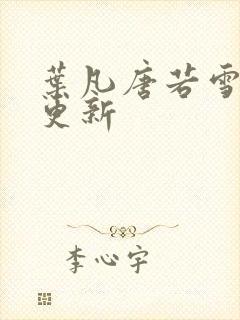 葉凡唐若雪
更新
李心宇